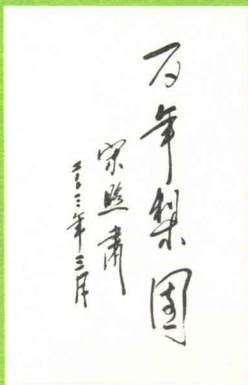 百年梨园
宋照肃
二〇〇三年三月